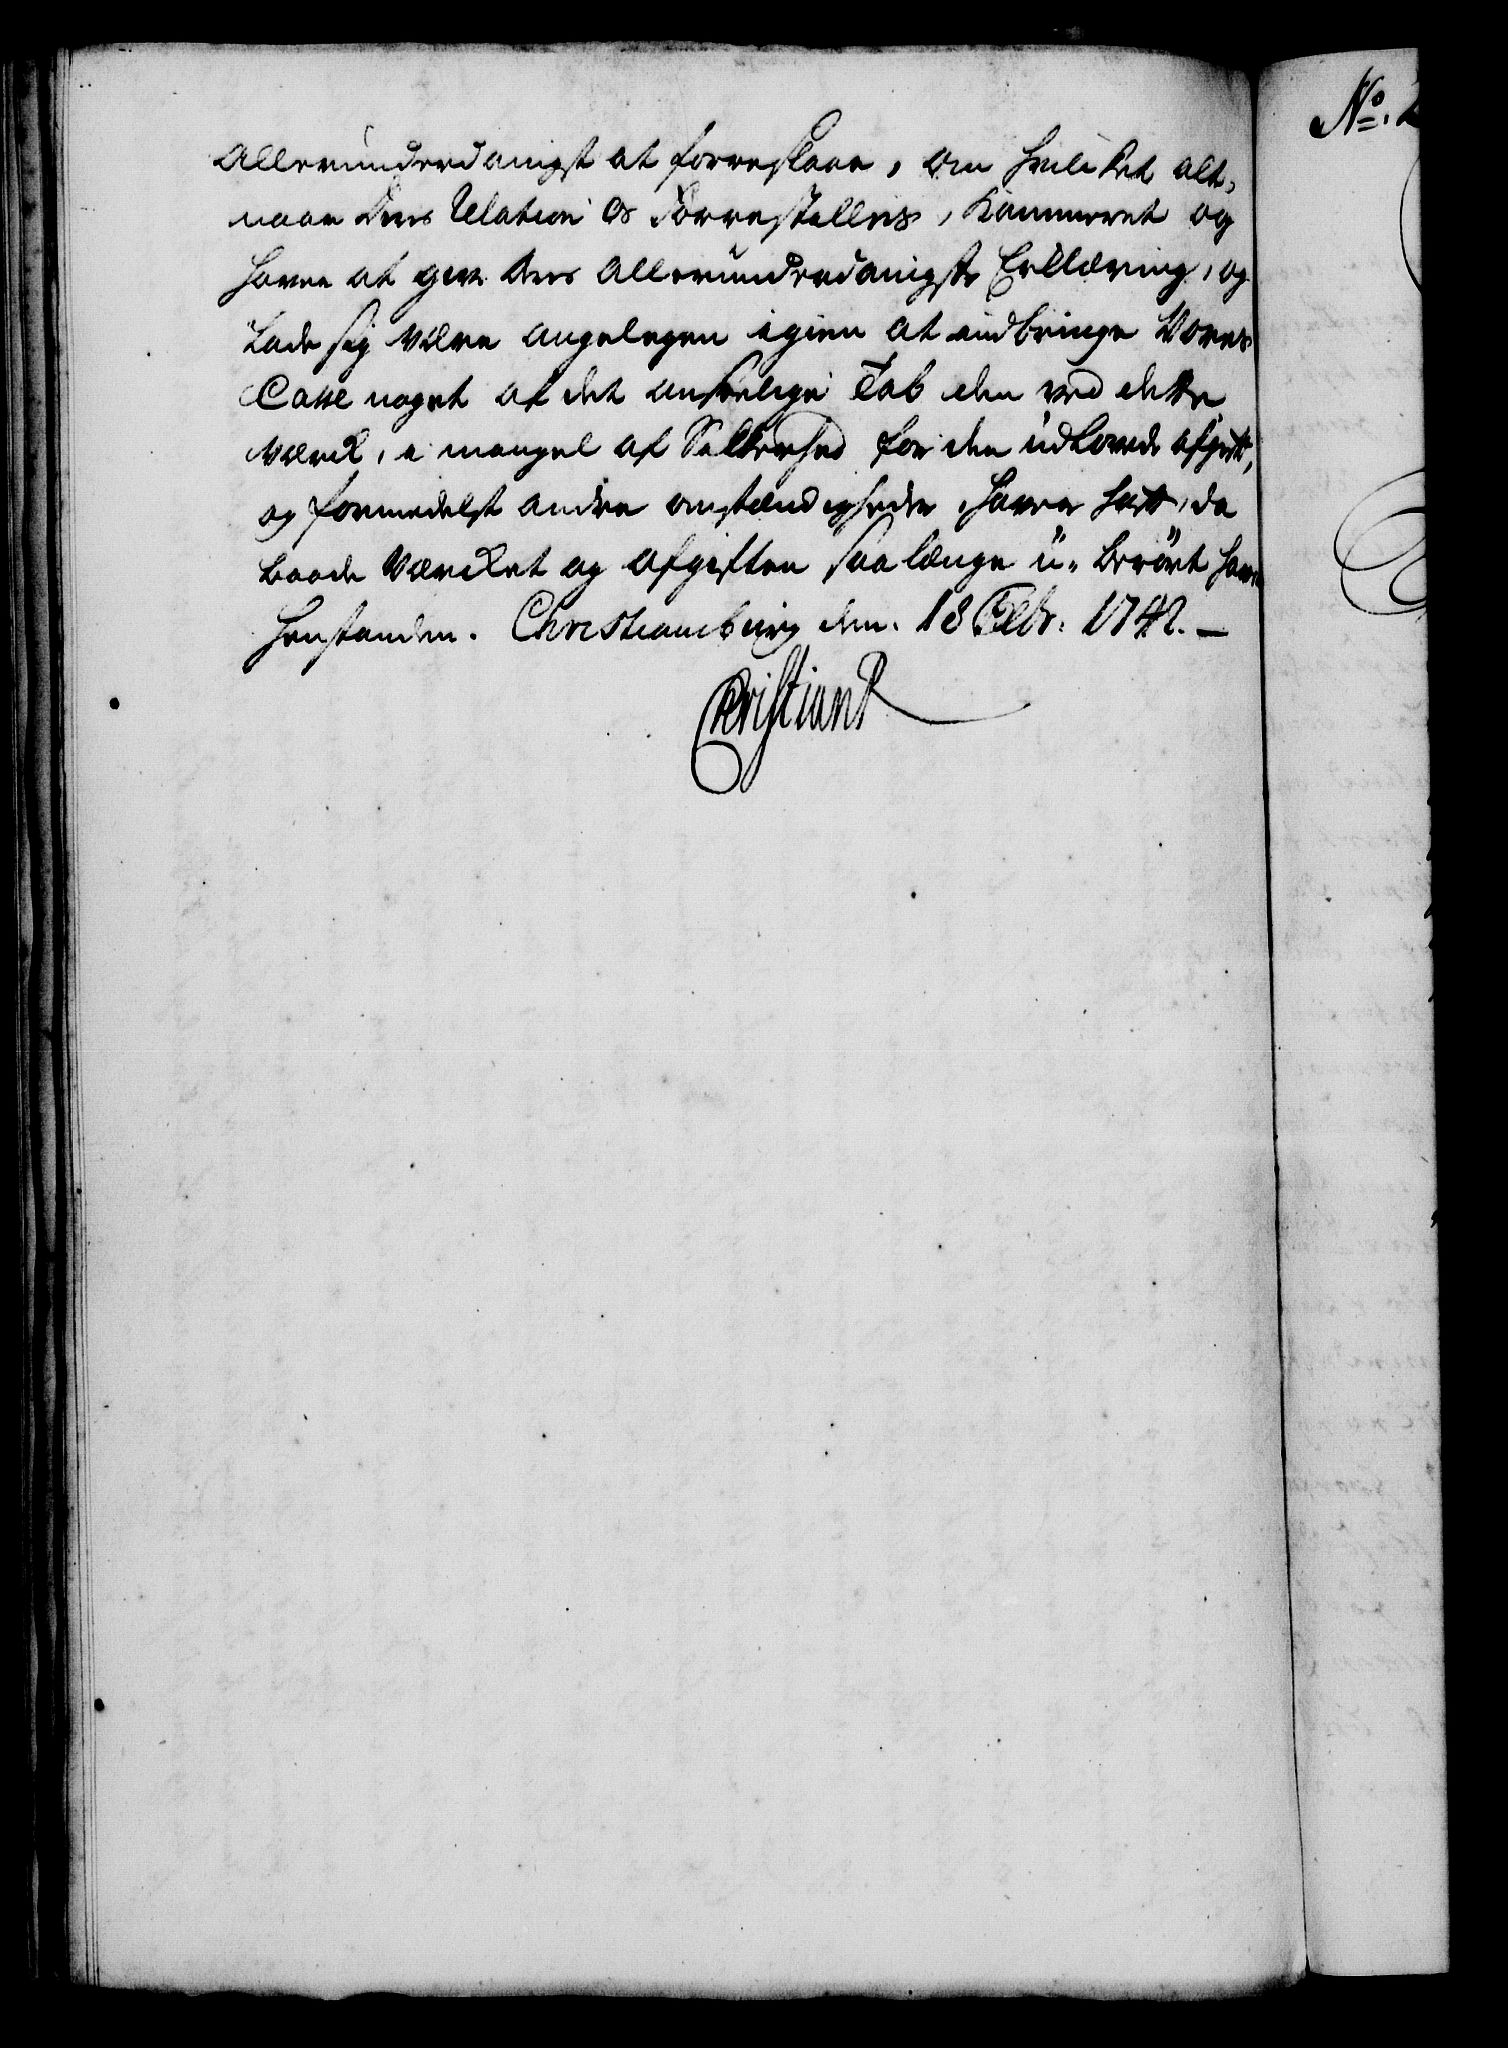 allerunderdanigst at foreslaae, om hvilcket alt,
naar deres Relation os Forrestilles, Kammeret og
haver at give deres allerunderdanigste Erklæring, og
Lade sig være angelegen igien at indbringe Vores
Casse noget af det anseelige Tab den ved dette
Værck, i mangel af Sickerhed for den udlovede afgift,
og formedelst andre omstændigheder, haver hatt, da
baade Værcket og afgiften saa længe u-berört haver
henstanden. Christiansburg den 18 Febr. 1742.
Christian R
No.